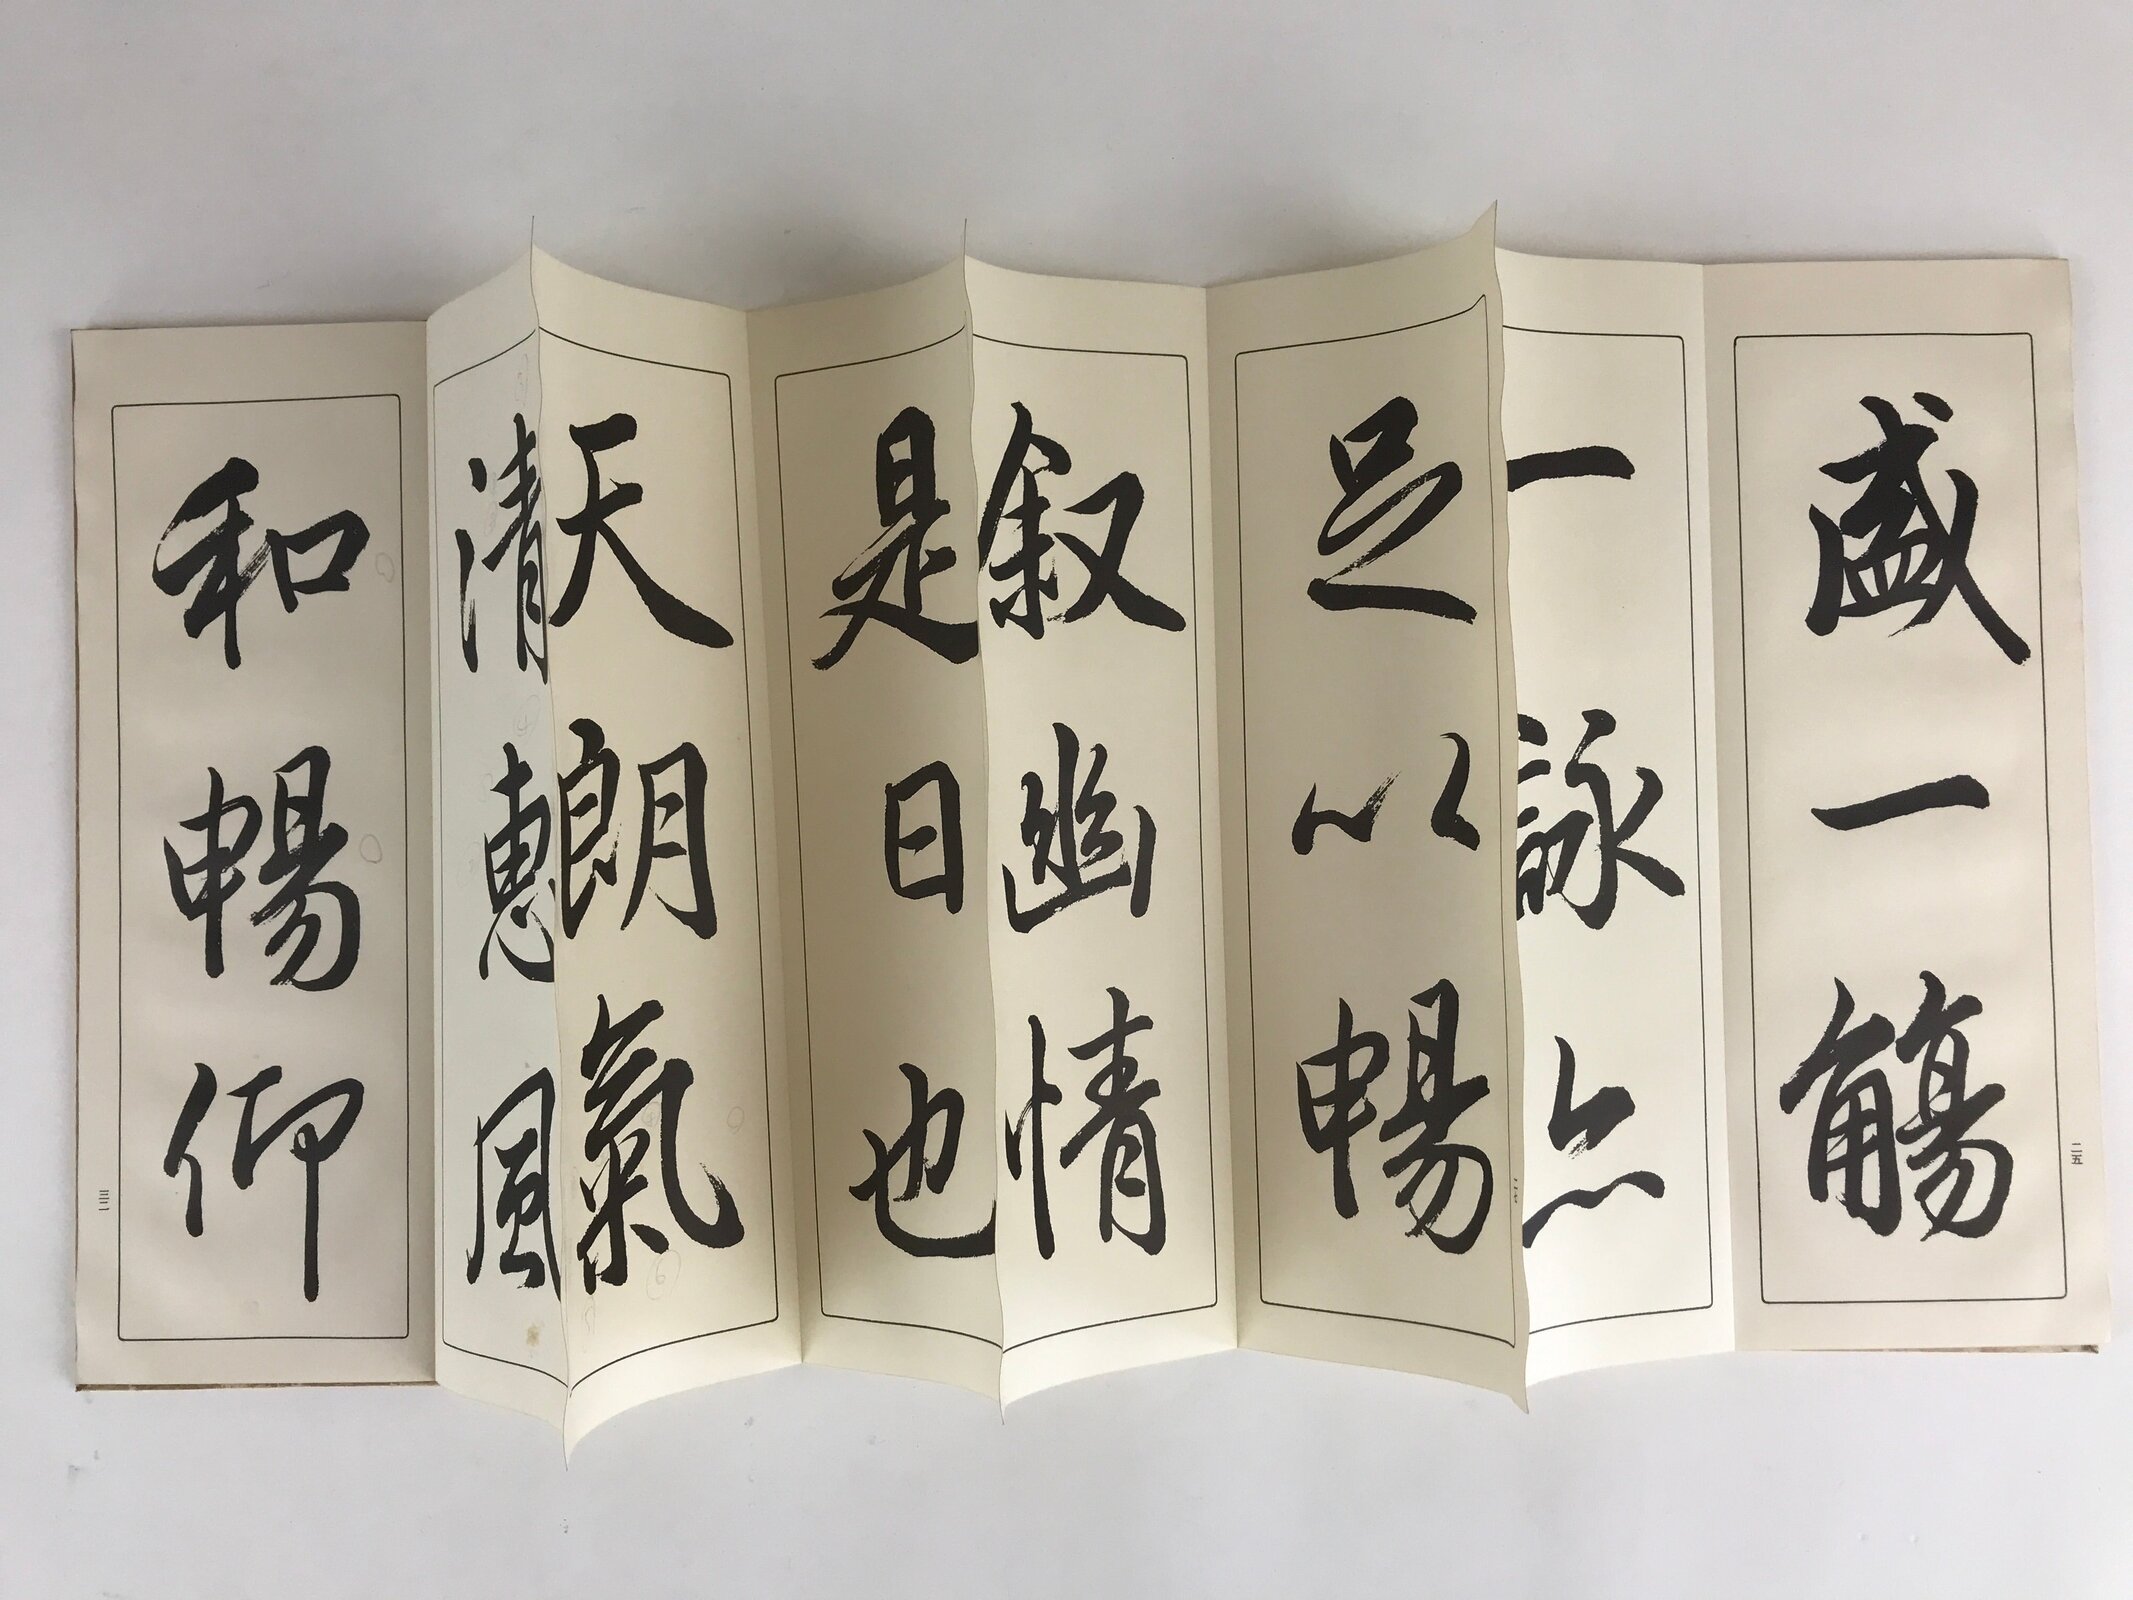 盛一觴
一詠亦
足以暢
叙幽情
是日也
天朗氣
清惠風
和暢仰
二五
三二